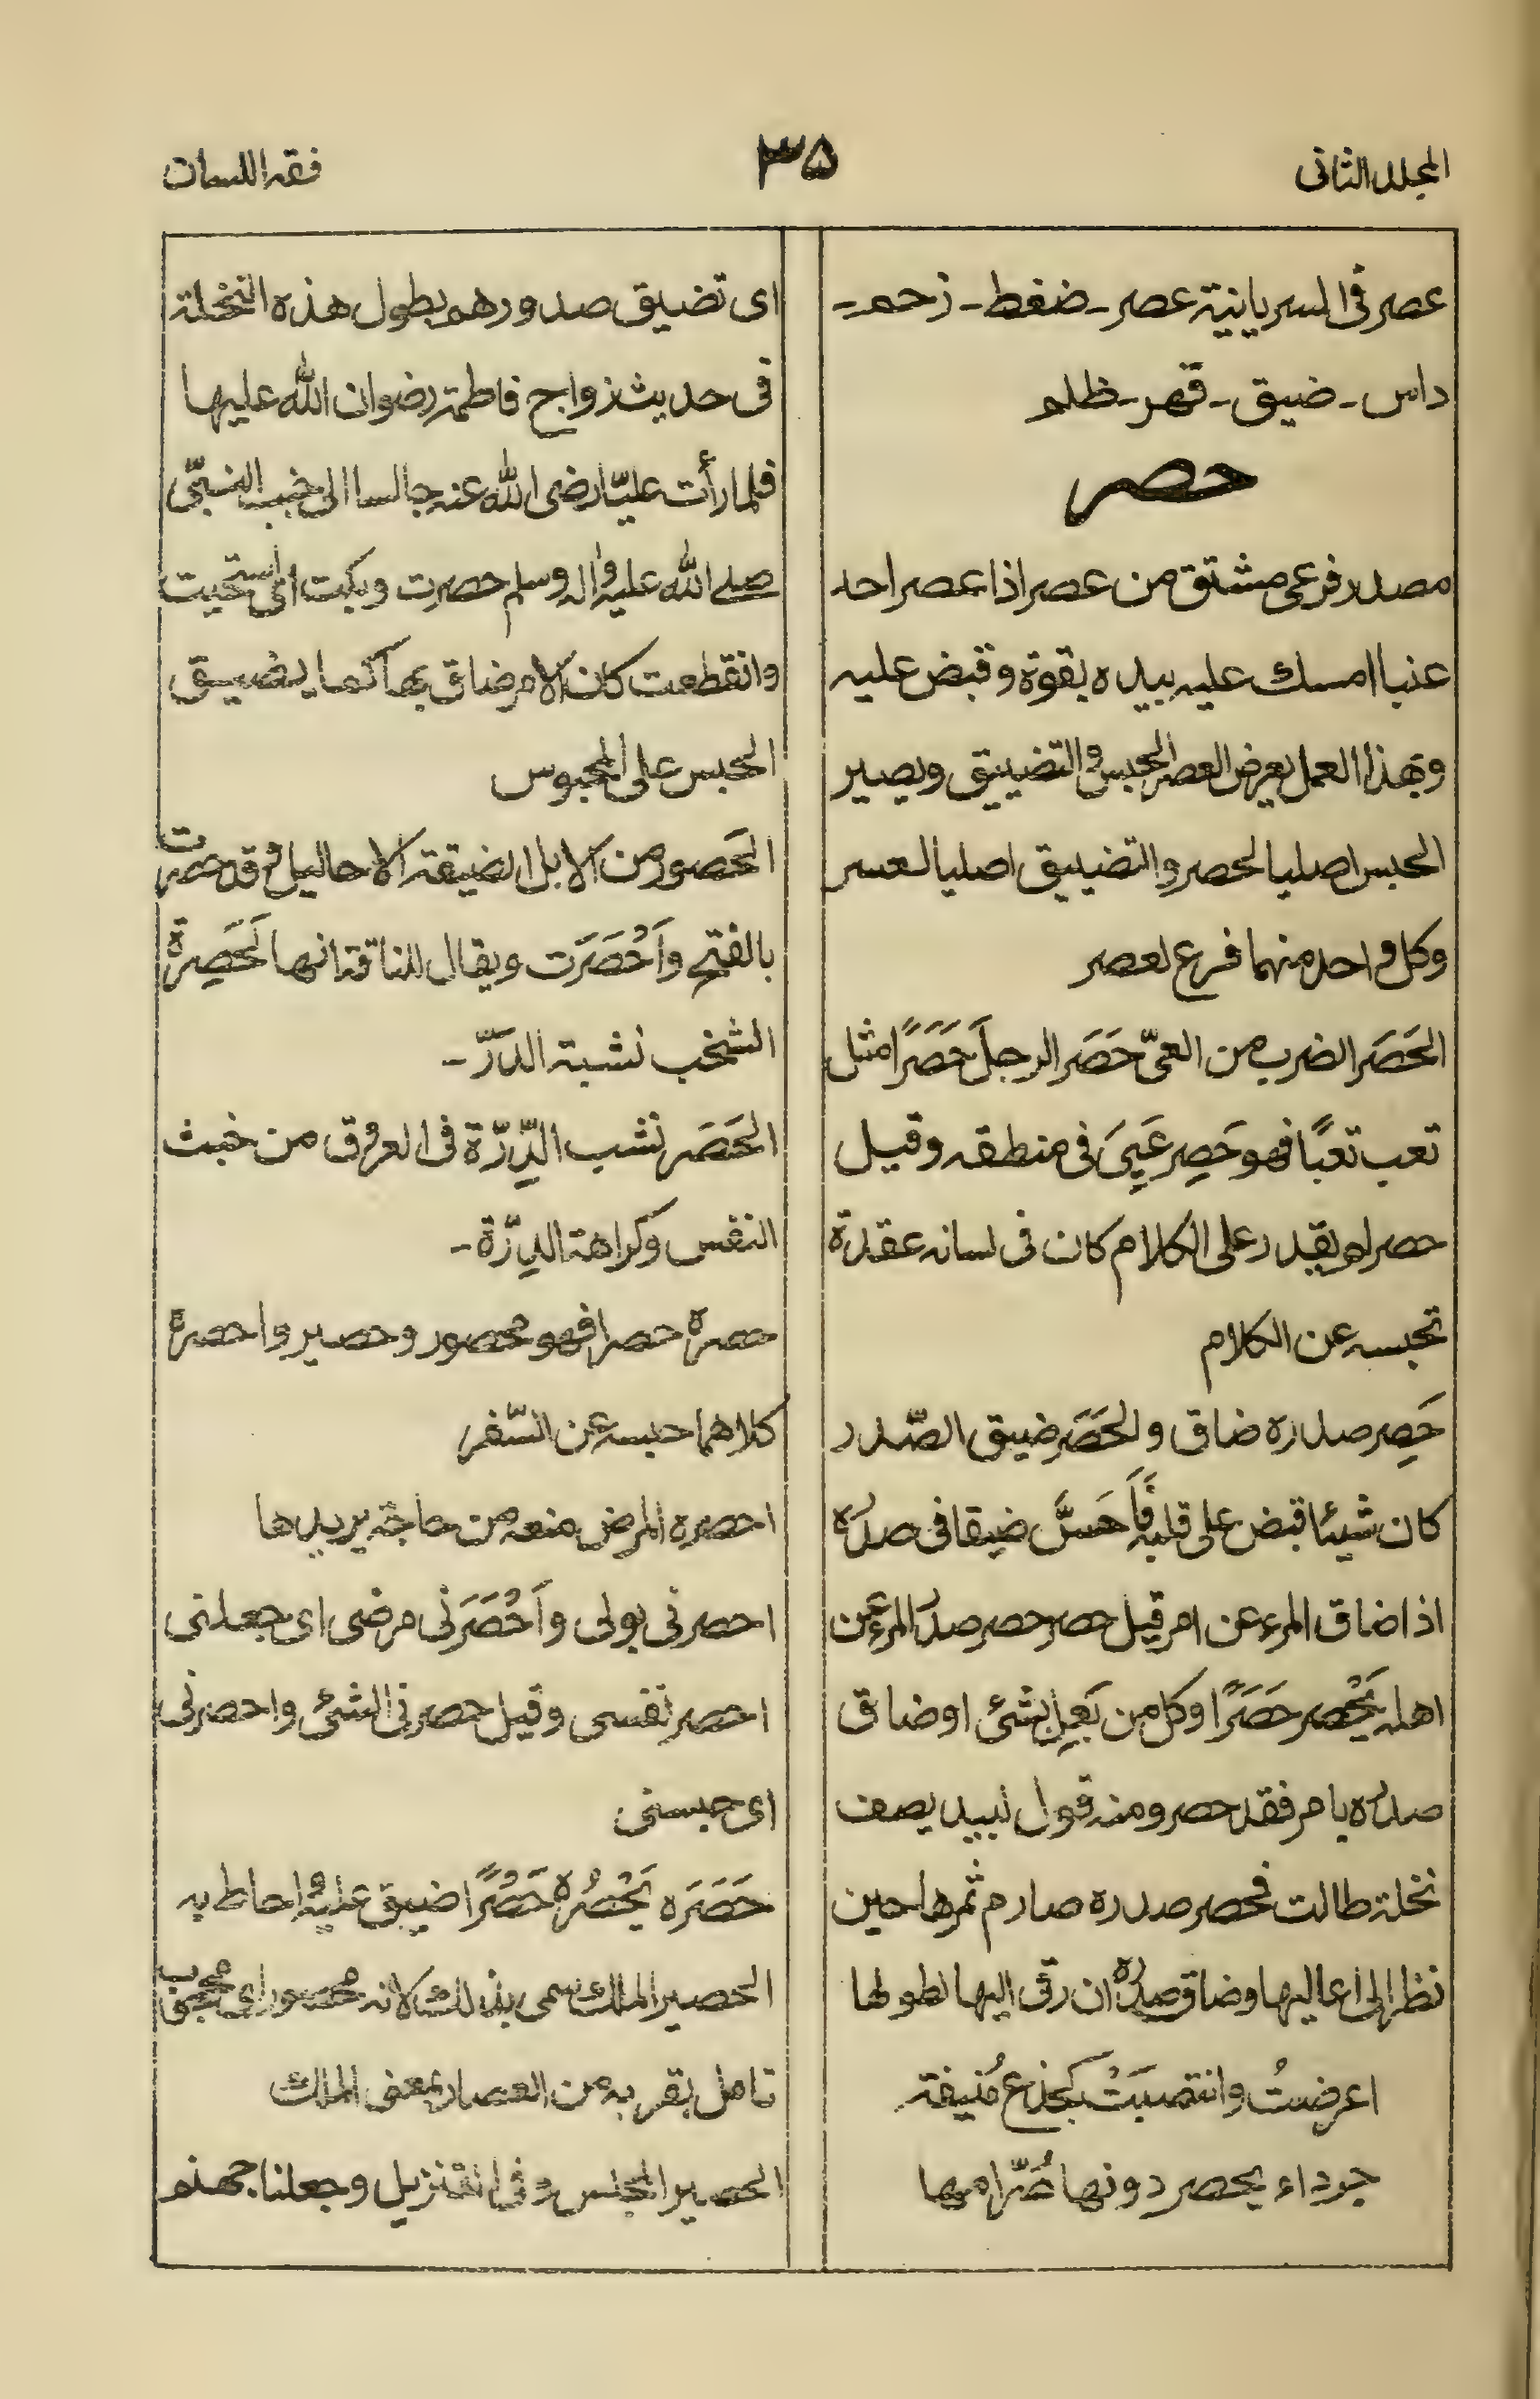 المجلد الثانى
٣٥
فقه اللسان
عصر فى السريانية عصر - ضغط - زحم -
داس - ضيق - قهر - ظلم
حصر
مصدر فرعى مشتق من عصر اذا عصر احد
عنبا امسك عليه بيده بقوة وقبض عليه
وبهذا العمل يعرض العصر الحبس والتضييق ويصير
الحبس اصليا لحصر والتضييق اصليا لعسر
وكل واحد منهما فرع لعصر
الحَصَر الضرب من العىّ حَصَر الرجل حَصَرًا مثل
تعب تعبًا فهو حَصِر عَيِىَ فى منطقه وقيل
حصر لم يقدر على الكلام كان فى لسانه عقدة
تحبسه عن الكلام
حَصِر صدره ضاق والحَصَر ضيق الصّدر
كان شيئا قبض على قلبه فَاَحَسَّ ضيقا فى صدره
اذا ضاق المرء عن امر قيل حصر حصر صدر المرء عن
اهله يَحْصر حَصَرًا وكل من بَعِل بشئ او ضاق
صدره بامر فقد حصر ومنه قول لبيد يصف
نخلة طالت فحصر صدره صارم ثمرها حين
نظر الى اعاليها وضاق صدره ان رقى اليها لطولها
اعرضتُ وانتصبَتْ كجذع مُنيفة
جرداء يحصر دونها صُرّامها
اى تضيق صدورهم بطول هذه النخلة
فى حديث زواج فاطمة رضوان الله عليها
فلما رأت عليّا رضى الله عنه جالسا الى جنب النبىّ
صلى الله عليه واله وسلم حصرت وبكت اى استحيت
وانقطعت كان الامر ضاق بها كما يضيق
الحبس على المحبوس
الحَصور من الابل الضيقة الاحاليل وقد حصرت
بالفتح واَحْصَرَت ويقال للناقة انها لحَصِرة
الشخب نشبة الدَرّ -
الحَصَر نشب الدِّرّة فى العروق من خبث
النفس وكراهة الدِرّة -
حصره حصرا فهو محصور وحصير واحصره
كلاهما حبسه عن السّفر
احصره المرض منعه من حاجة يريدها
احصرنى بولى واَحْصَرَنى مرضى اى جعلنى
احصر نفسى وقيل حصرنى الشئ واحصرنى
اى حبسنى
حَصَرَه يَحْصُرُه حَصْرًا ضيق عليه واحاط به
الحصير الملك سمى بذلك لانه محصور اى محجوب
تامل بقربه من العصار بمعنى الملك
الحصير المجلس وفى التنزيل وجعلنا جهنم